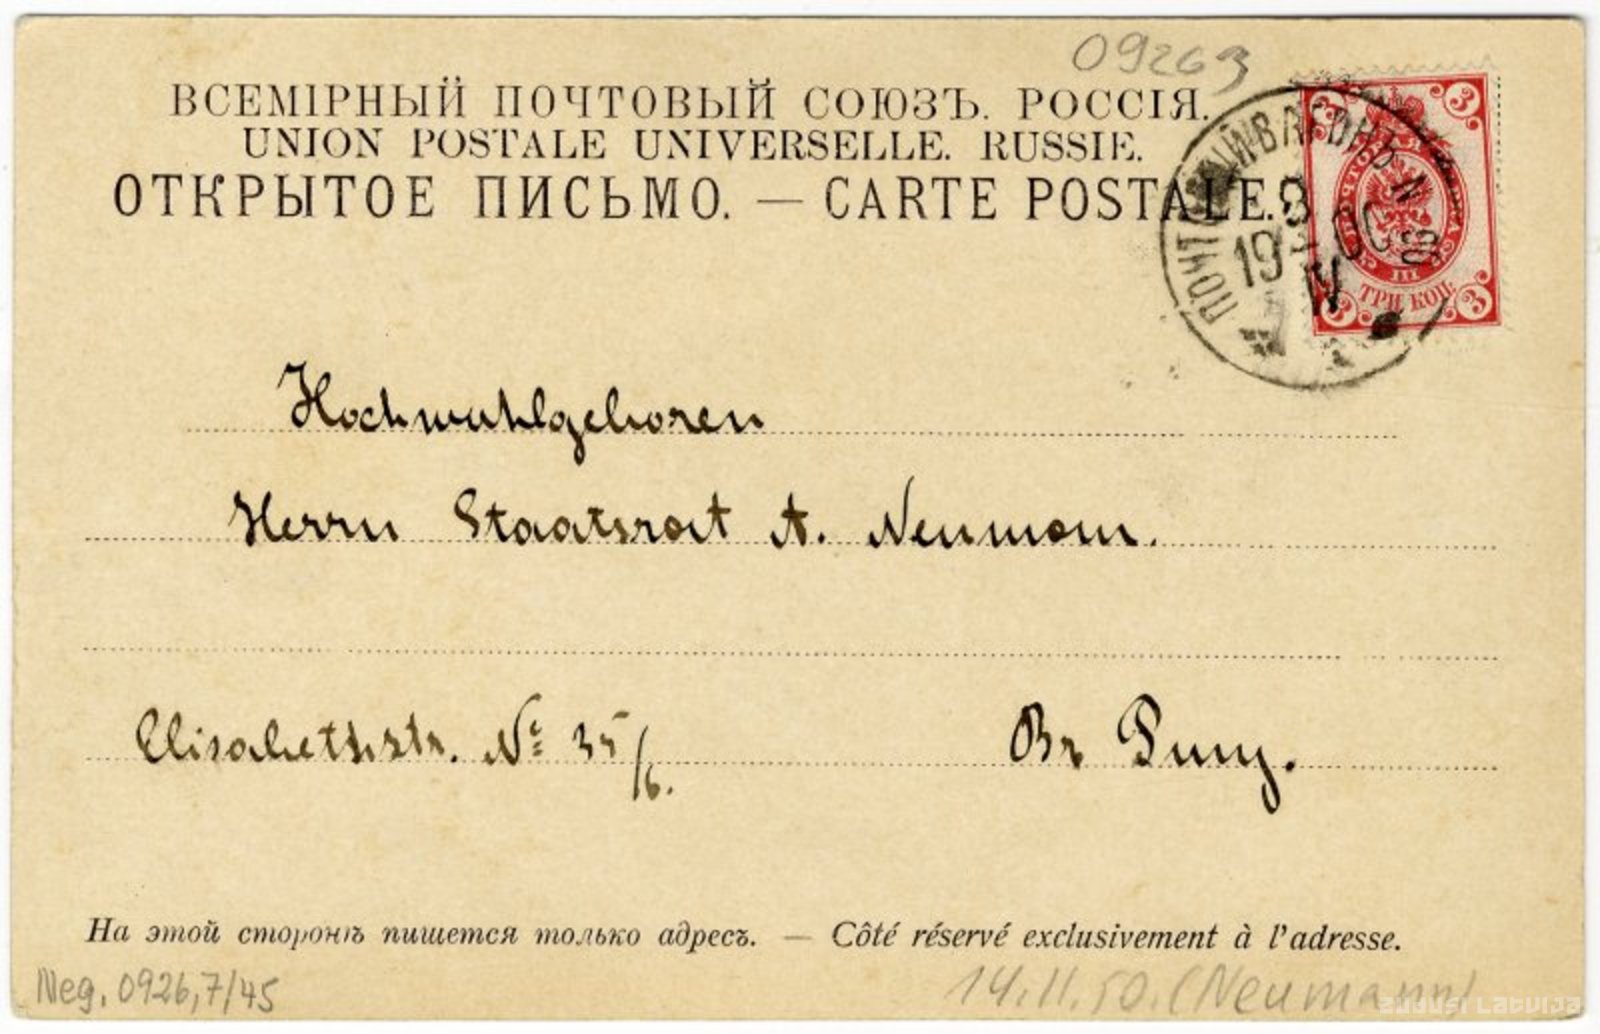 09263
ВСЕМІРНЫЙ ПОЧТОВЫЙ СОЮЗЪ. РОССІЯ.
UNION POSTALE UNIVERSELLE. RUSSIE.
ОТКРЫТОЕ ПИСЬМО. — CARTE POSTALE.
ПОЧТОВЫЙ ВАГОНЪ N
19
3 3
ТРИ КОП.
3 3
Hochwohlgeboren
Herrn Staatsrat A. Neumann.
Elisabethstr. № 35/6.
На этой сторонѣ пишется только адресъ. — Côté réservé exclusivement à l'adresse.
Neg. 0926,7/45
14.11.50. (Neumann)
zudusi Latvija